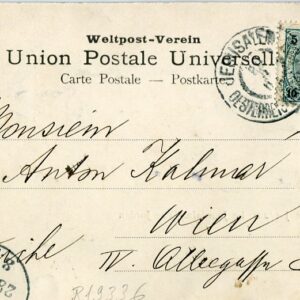 Weltpost-Verein
Union Postale Universell
Carte Postale — Postkarte
JERUSALEM
OESTERREI
Monsieur
Anton Kalmar
Wien
IV. Alleegasse
R19336